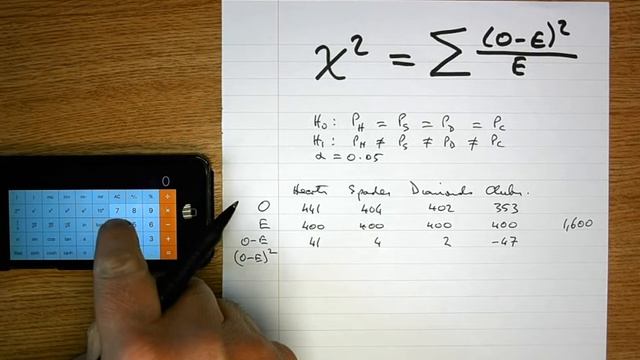 χ² = Σ (O-E)² / E
H₀: P_H = P_S = P_D = P_C
H₁: P_H ≠ P_S ≠ P_D ≠ P_C
α = 0.05
Hearts Spades Diamonds Clubs
O 441 404 402 353
E 400 400 400 400 1,600
O-E 41 4 2 -47
(O-E)²
0
AC
7 8 9
6
3